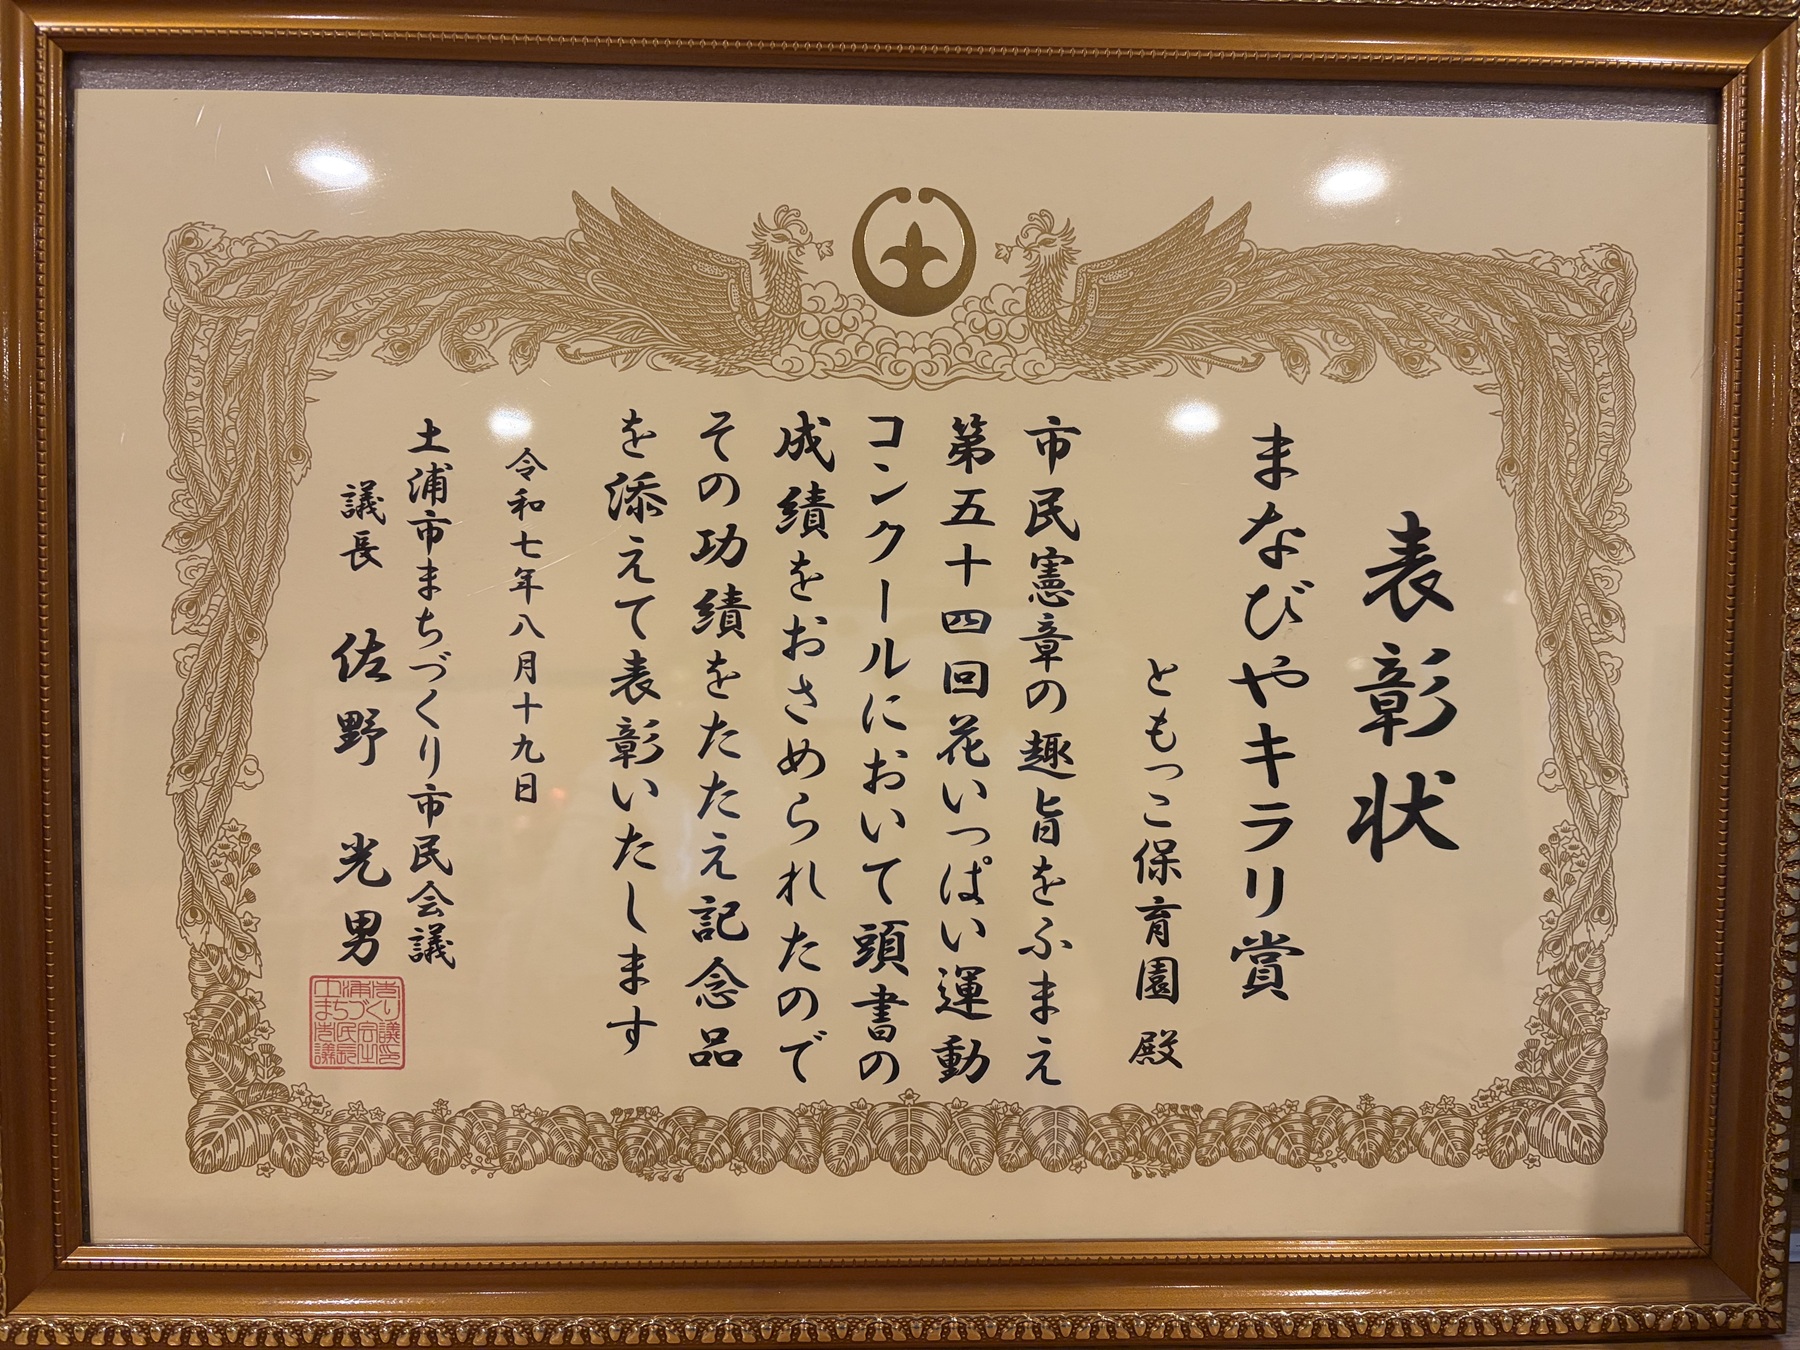 表彰状
まなびやキラリ賞
ともっこ保育園 殿
市民憲章の趣旨をふまえ
第五十四回花いっぱい運動
コンクールにおいて頭書の
成績をおさめられたので
その功績をたたえ記念品
を添えて表彰いたします
令和七年八月十九日
土浦市まちづくり市民会議
議長 佐野 光男